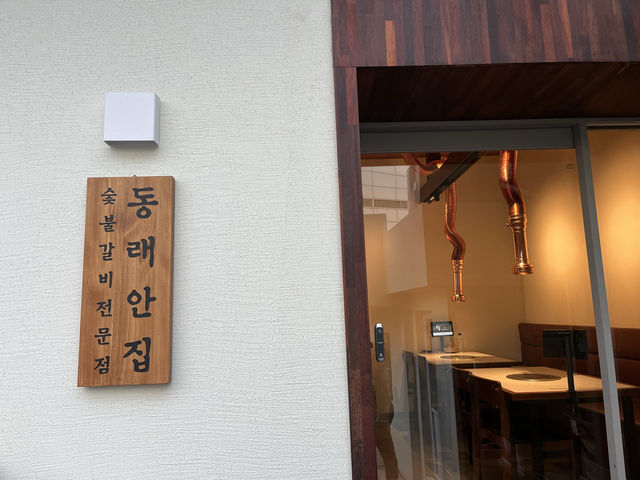 동래안집
숯불갈비전문점